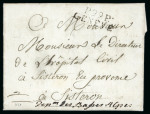 A Monsieur
Monsieur Le Directeur
De l'hôpital Civil
a Sisteron en provence
A Sisteron
Dep.t des Basses Alpes